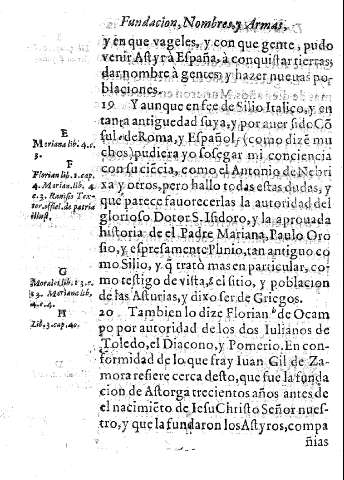 Fundacion, Nombres, y Armas,
y en que vageles, y con que gente, pudo
venir Astyr à España, à conquistar tierras,
dar nombre à gentes, y hazer nueuas po-
blaciones.
19 Y aunque en fee de Silio Italico, y en
tanta antiguedad suya, y por auer sido Cō
sul de Roma, y Español, (como dizē mu
chos) pudiera yo sosegar mi conciencia
con su ciēcia, como el Antonio de Nebri
xa y otros, pero hallo todas estas dudas, y
que parece fauorecerlas la autoridad del
glorioso Dotor S. Isidoro, y la aprouada
historia de el Padre Mariana, Paulo Oro
sio, y espresamente Plinio, tan antiguo co
mo Silio, y q̄ tratò mas en particular, co-
mo testigo de vista, el sitio, y poblacion
de las Asturias, y dixo ser de Griegos.
20 Tambien lo dize Florian h de Ocam
po por autoridad de los dos Iulianos de
Toledo, el Diacono, y Pomerio. En con-
formidad de lo que fray Iuan Gil de Za-
mora refiere cerca desto, que fue la funda
cion de Astorga trecientos años antes de
el nacimiēto de Iesu Christo Señor nues-
tro, y que la fundaron los Astyros, compa
ñias
E
Mariana lib. 4. c.
3.
F
Florian lib. 1. cap.
4. Marian. lib. 4
c. 3. Rauisio Tex-
tor. offici. de patria
illust.
G
Morales lib.
Mariana lib,
4. c. 4.
H
Lib, 3. cap. 40.